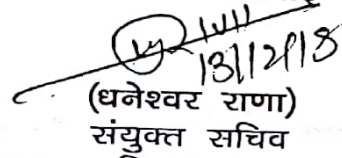 13/12/18
(धनेश्वर राणा)
संयुक्त सचिव